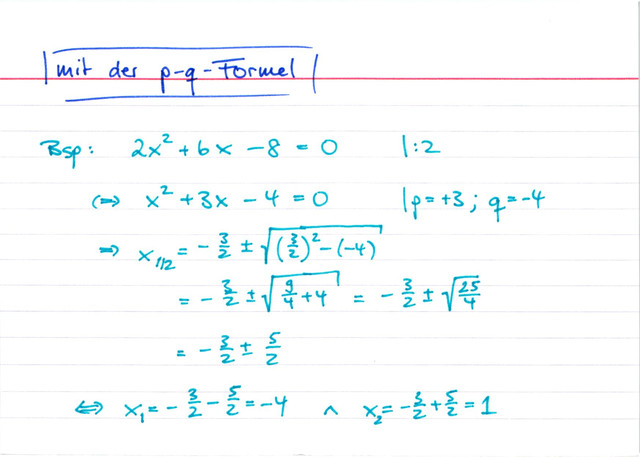 mit der p-q-Formel
Bsp: 2x² + 6x - 8 = 0 |:2
⇔ x² + 3x - 4 = 0 |p=+3; q=-4
⇒ x₁/₂ = - 3/2 ± √((3/2)² - (-4))
= - 3/2 ± √(9/4 + 4) = - 3/2 ± √(25/4)
= - 3/2 ± 5/2
⇔ x₁ = - 3/2 - 5/2 = -4 ∧ x₂ = - 3/2 + 5/2 = 1